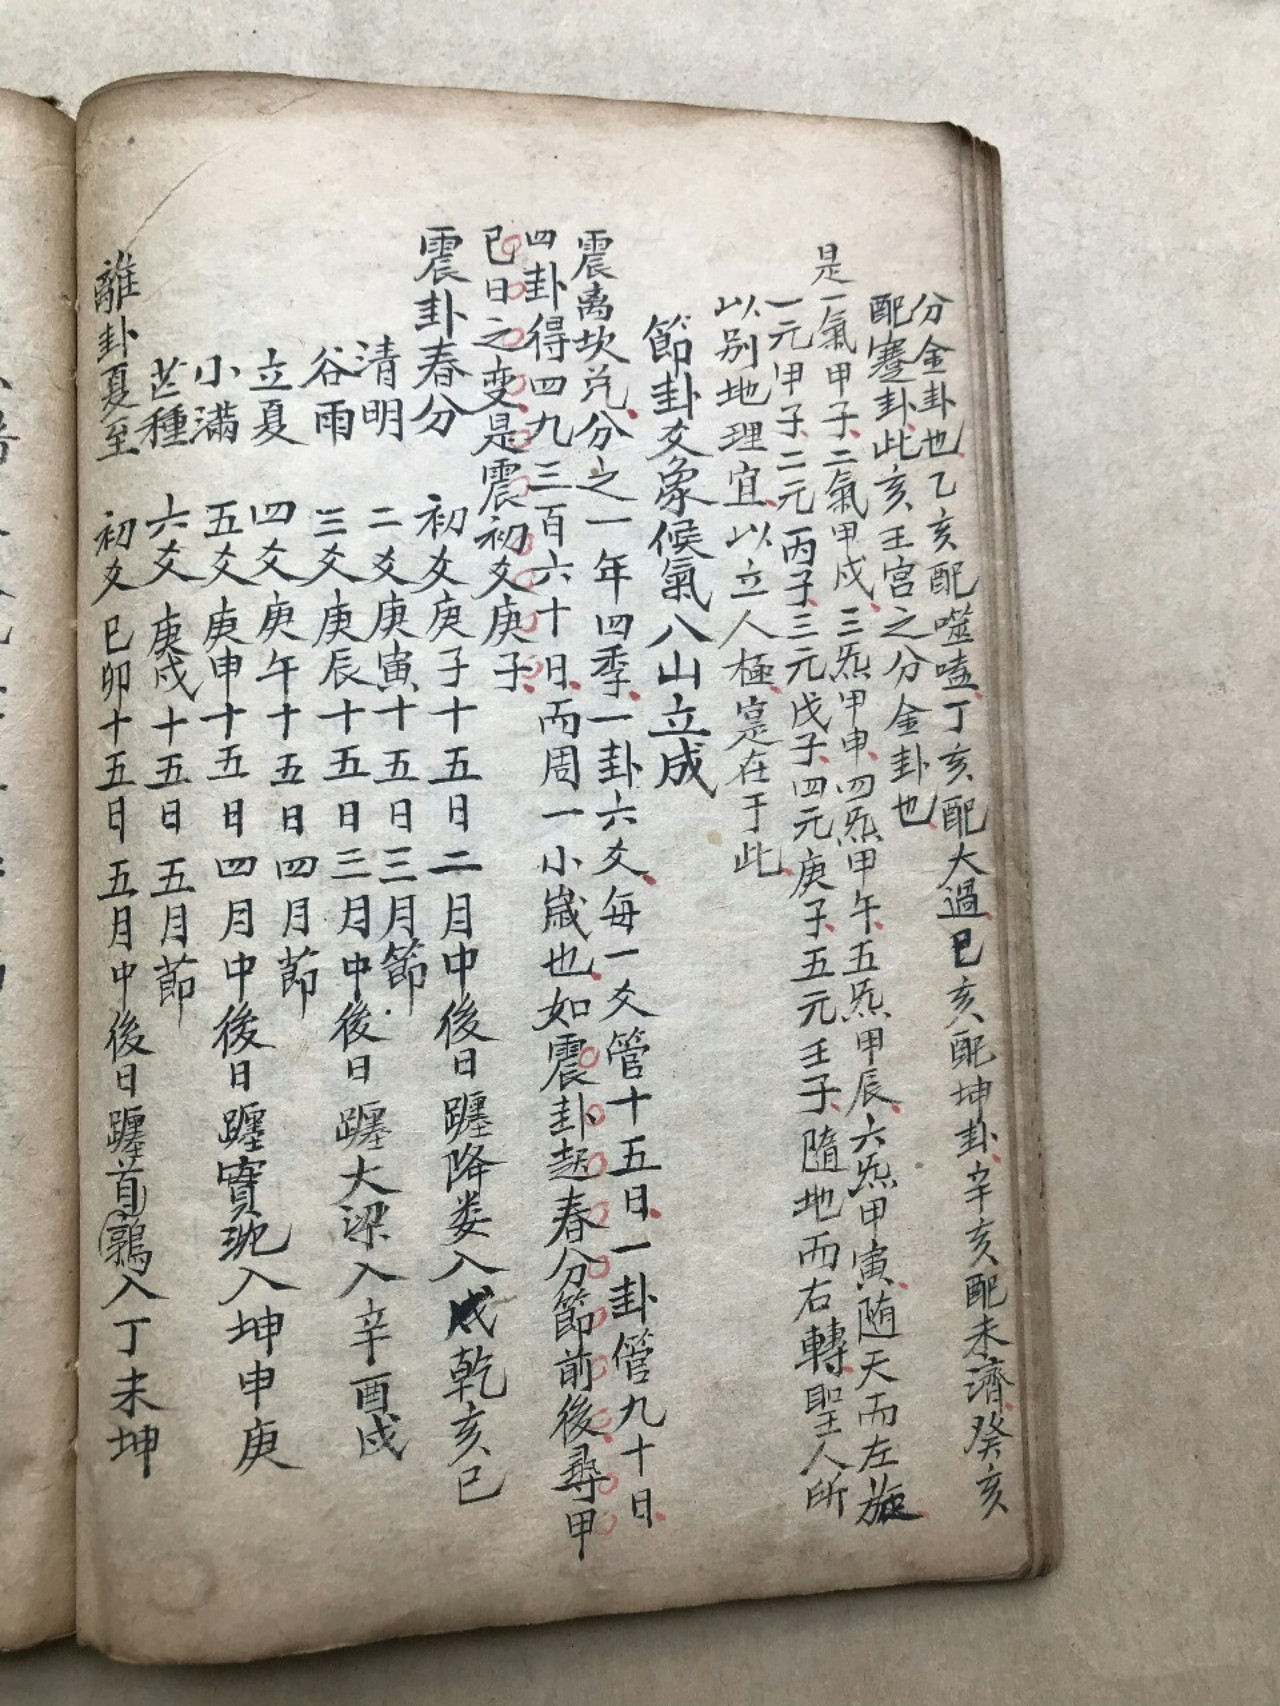 分金卦也乙亥配噬嗑丁亥配大過己亥配坤卦辛亥配未濟癸亥
配蹇卦此亥壬宮之分金卦也
是一氣甲子二氣甲戌三炁甲申四炁甲午五炁甲辰六炁甲寅随天而左旋
一元甲子二元丙子三元戊子四元庚子五元壬子隨地而右轉聖人所
以别地理宜以立人極寔在于此
節卦爻象候氣八山立成
震离坎兑分之一年四季一卦六爻每一爻管十五日一卦管九十日
四卦得四九三百六十日而周一小嵗也如震卦起春分節前後尋甲
己日之变是震初爻庚子
震卦春分 初爻庚子十五日二月中後日躔降娄入戌乾亥己
清明 二爻庚寅十五日三月節
谷雨 三爻庚辰十五日三月中後日躔大梁入辛酉戌
立夏 四爻庚午十五日四月節
小滿 五爻庚申十五日四月中後日躔實沈入坤申庚
芒種 六爻庚戌十五日五月節
離卦夏至 初爻己卯十五日五月中後日躔首鶉入丁未坤